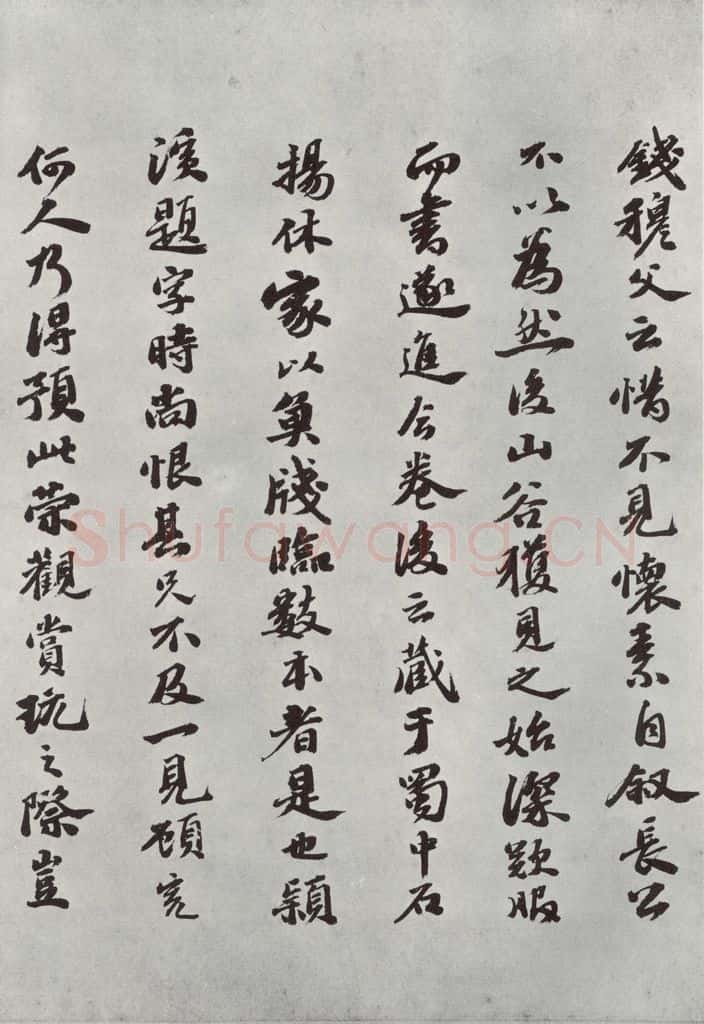 錢穆父云惜不見懷素自叙長公
不以為然後山谷獲見之始深歎服
而書遂進今卷後云藏于蜀中石
揚休家以魚牋臨數本者是也潁
濱題字時尚恨其兄不及一見顧寬
何人乃得預此榮觀賞玩之際豈
Shufawang.CN